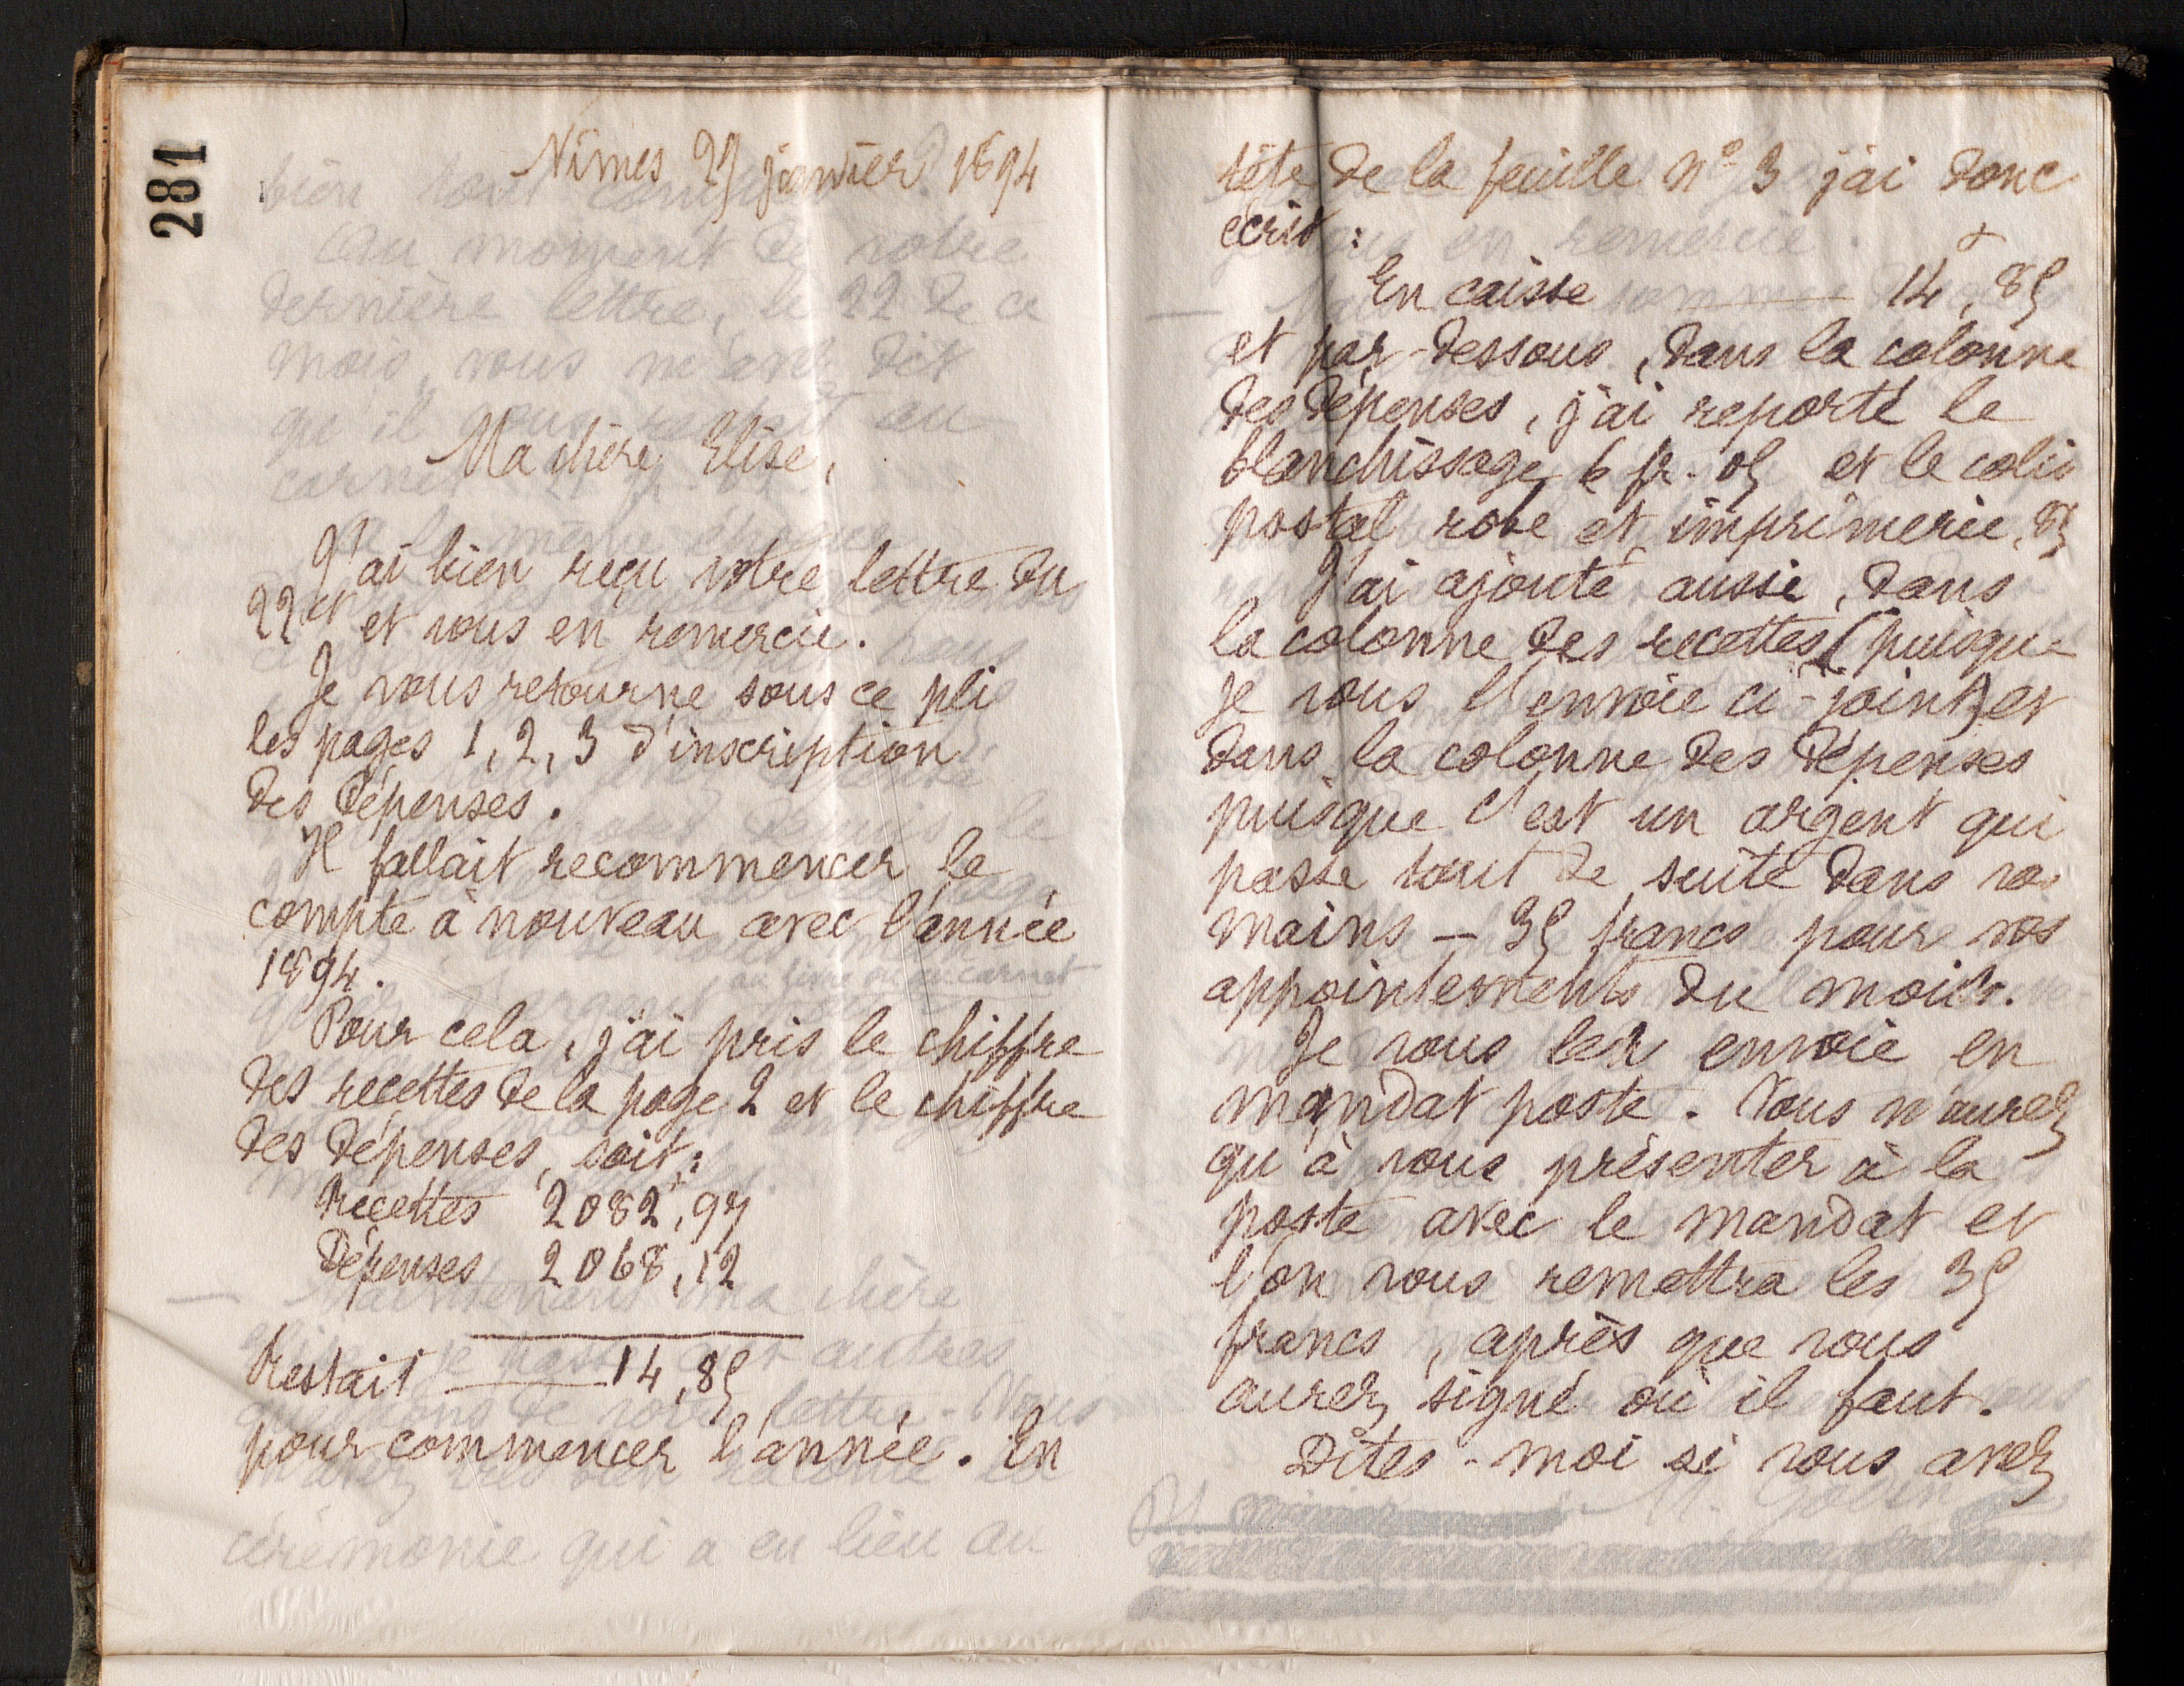 281
Nîmes 27 janvier 1894
Ma chère Elise,
J'ai bien reçu votre lettre du
22 ct et vous en remercie.
Je vous retourne sous ce pli
les pages 1, 2, 3 d'inscription
des dépenses.
Il fallait recommencer le
compte à nouveau avec l'année
1894.
Pour cela, j'ai pris le chiffre
des recettes de la page 2 et le chiffre
des dépenses, soit:
Recettes 2082f,97
Dépenses 2068,12
Restait — 14,85
pour commencer l'année. En
tête de la feuille N° 3 j'ai donc
écrit:
En caisse — 14f,85
et par-dessous, dans la colonne
des dépenses, j'ai reporté le
blanchissage 6 fr. 05 et le colis
postal robe et imprimerie, 85
J'ai ajouté aussi, dans
la colonne des recettes (puisque
je vous l'envoie ci-joint) et
dans la colonne des dépenses
puisque c'est un argent qui
passe tout de suite dans vos
mains — 35 francs pour vos
appointements du mois.
Je vous les envoie en
mandat poste. Vous n'aurez
qu'à vous présenter à la
poste avec le mandat et
l'on vous remettra les 35
francs, après que vous
aurez signé où il faut.
Dites-moi si vous avez